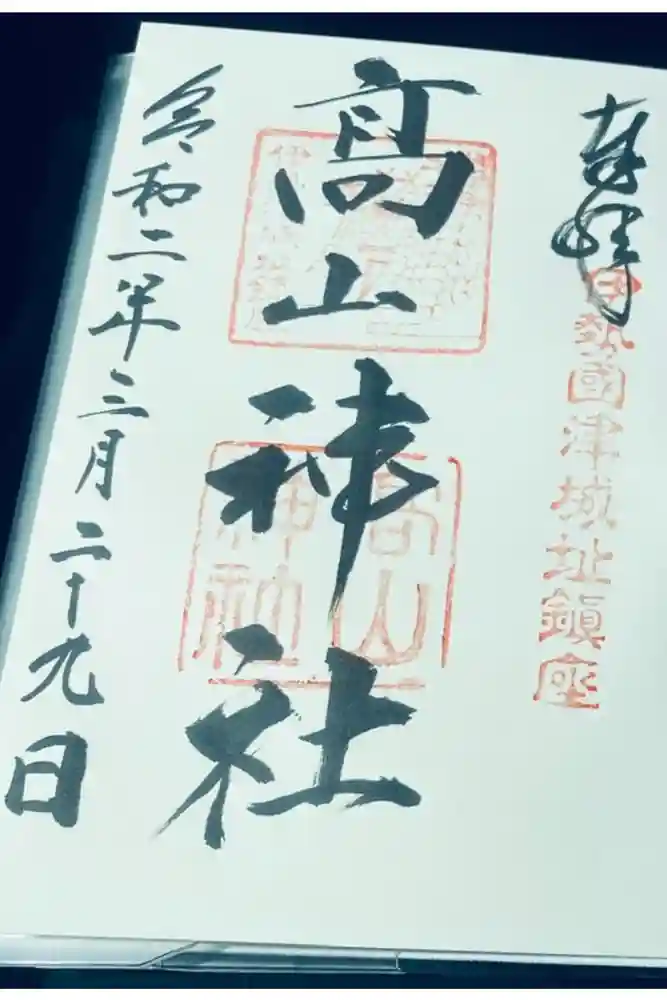 奉拝
伊勢國津城址鎮座
髙山神社
高山神社
令和二年三月二十九日